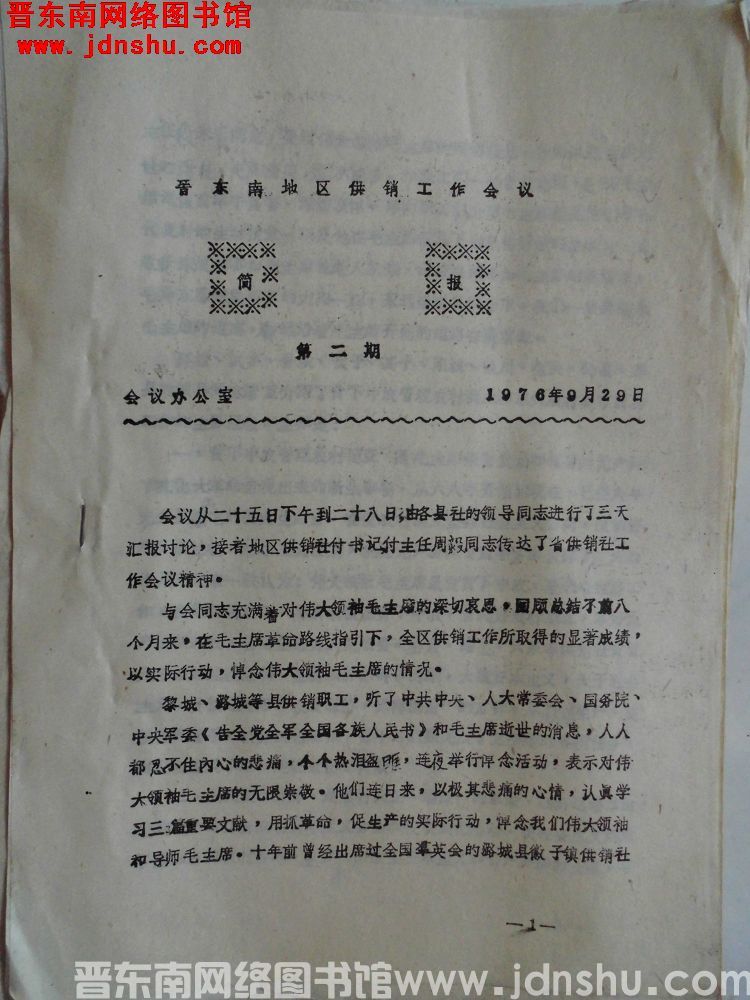 晋东南网络图书馆
www.jdnshu.com
晋东南地区供销工作会议
简 报
第二期
会议办公室 1976年9月29日
会议从二十五日下午到二十八日,由各县社的领导同志进行了三天
汇报讨论，接者地区供销社付书记付主任周毅同志传达了省供销社工
作会议精神。
与会同志充满着对伟大领袖毛主席的深切哀思，回顾总结了前八
个月来，在毛主席革命路线指引下，全区供销工作所取得的显著成绩，
以实际行动，悼念伟大领袖毛主席的情况。
黎城、潞城等县供销职工，听了中共中央、人大常委会、国务院、
中央军委《告全党全军全国各族人民书》和毛主席逝世的消息，人人
都忍不住内心的悲痛，个个热泪盈眶，连夜举行悼念活动，表示对伟
大领袖毛主席的无限崇敬。他们连日来，以极其悲痛的心情，认真学
习三篇重要文献，用抓革命，促生产的实际行动，悼念我们伟大领袖
和导师毛主席。十年前曾经出席过全国群英会的潞城县微子镇供销社
—1—
晋东南网络图书馆www.jdnshu.com